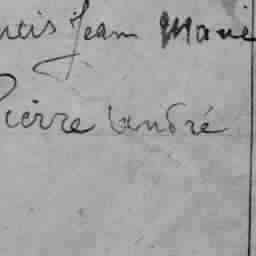 Jean Marie
Pierre André